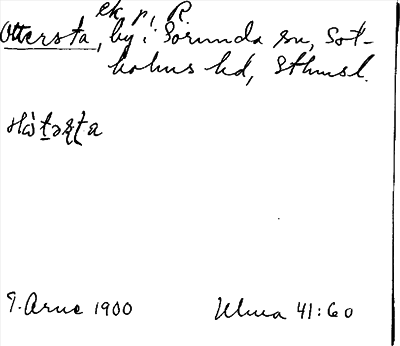 ek p. i R.
Ottersta, by i Sorunda sn, Sot-
holms hd, Sthmsl.
T. Arne 1900 Ulma 41:60